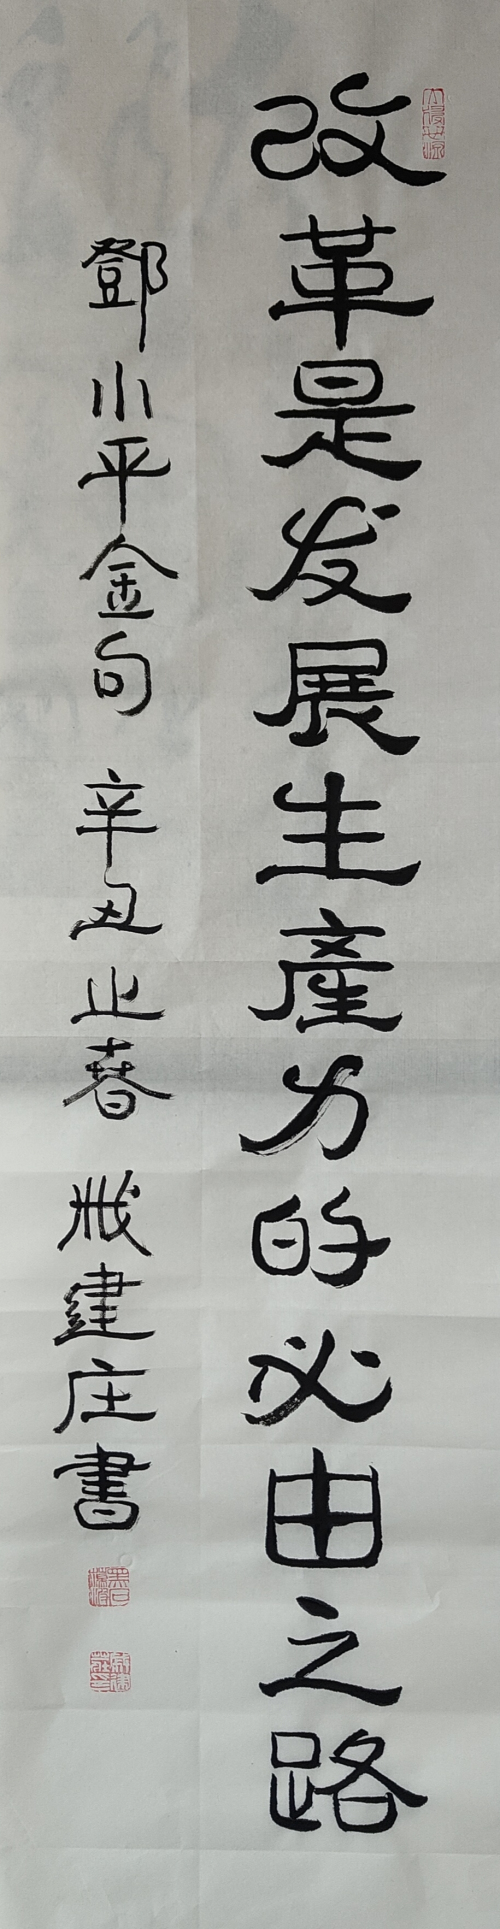 改革是发展生產力的必由之路
鄧小平金句 辛丑之春 戚建庄書